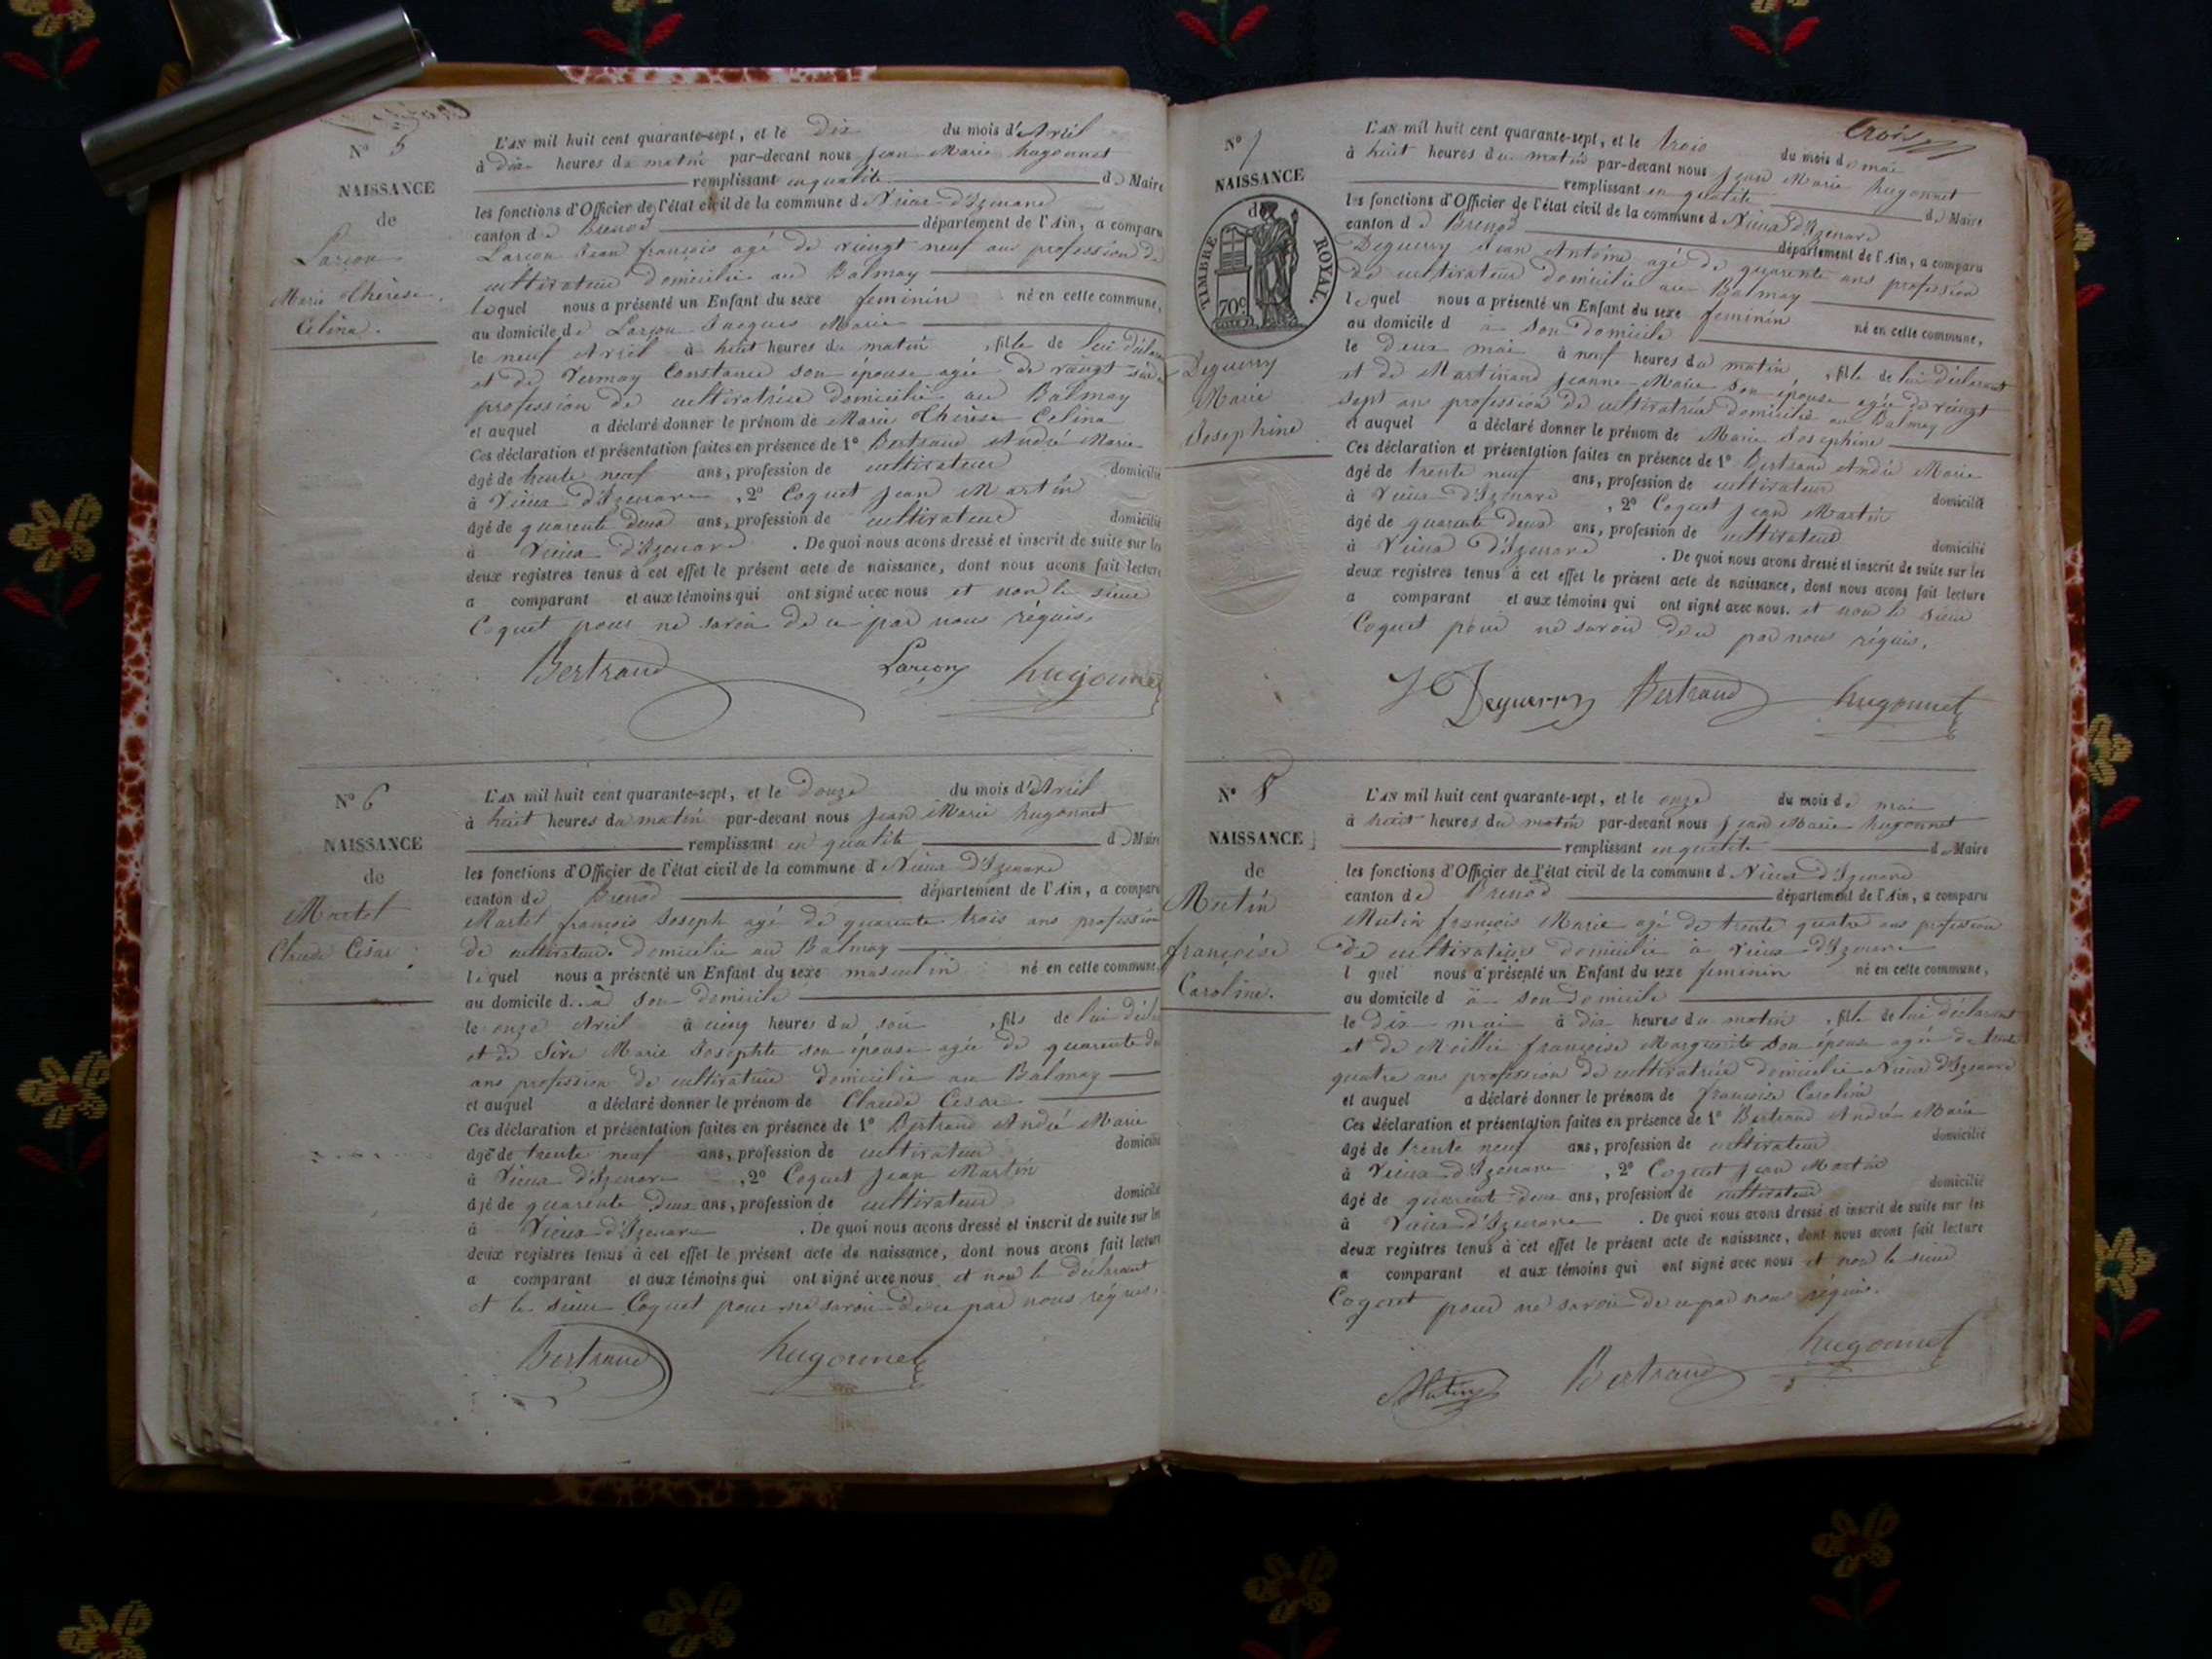 N° 5
NAISSANCE
de
Larçon
Marie Thérèse
Célina.
L'AN mil huit cent quarante-sept, et le Dix du mois d'Avril
à dix heures du matin par-devant nous Jean Marie hugonnet
remplissant en qualité de Maire
les fonctions d'Officier de l'état civil de la commune d Vieux d'Izenave
canton de Brenod département de l'Ain, a comparu
Larçon Jean françois agé de vingt neuf ans profession de
cultivateur domicilié au Balmay
lequel nous a présenté un Enfant du sexe feminin né en cette commune,
au domicile de Larçon Jacques Marie
le neuf Avril à huit heures du matin , fille de lui
et de Constance son épouse agée de vingt
profession de cultivatrice domicilié au Balmay
et auquel a déclaré donner le prénom de Marie Thérèse Celina
Ces déclaration et présentation faites en présence de 1° Bertrand André Marie
âgé de trente neuf ans, profession de cultivateur domicilié
à Vieux d'Izenave , 2° Coquet Jean Martin
âgé de quarente deux ans, profession de cultivateur domicilié
à Vieux d'Izenave . De quoi nous avons dressé et inscrit de suite sur les
deux registres tenus à cet effet le présent acte de naissance, dont nous avons fait lecture
a comparant et aux témoins qui ont signé avec nous et non le sieur
Coquet pour ne savoir de ce par nous réquis.
Bertrand Larçon hugonnet
N° 6
NAISSANCE
de
Martel
Claude César
L'AN mil huit cent quarante-sept, et le Douze du mois d'Avril
à huit heures du matin par-devant nous Jean Marie hugonnet
remplissant en qualité d Maire
les fonctions d'Officier de l'état civil de la commune d Vieux d'Izenave
canton de Brenod département de l'Ain, a comparu
Martel françois Joseph agé de quarente trois ans profession
de cultivateur domicilié au Balmay
lequel nous a présenté un Enfant du sexe masculin né en cette commune,
au domicile d à son domicile
le onze Avril à cinq heures du soir , fils de lui
et de Marie Josephte son épouse agée de quarente
ans profession de cultivatrice domicilié au Balmay
et auquel a déclaré donner le prénom de Claude Cesar
Ces déclaration et présentation faites en présence de 1° Bertrand André Marie
âgé de trente neuf ans, profession de cultivateur domicilié
à Vieux d'Izenave , 2° Coquet Jean Martin
âgé de quarente Deux ans, profession de cultivateur domicilié
à Vieux d'Izenave . De quoi nous avons dressé et inscrit de suite sur les
deux registres tenus à cet effet le présent acte de naissance, dont nous avons fait lecture
a comparant et aux témoins qui ont signé avec nous et non le déclarant
et le sieur Coquet pour ne savoir de ce par nous réquis.
Bertrand hugonnet
trois
N° 7
NAISSANCE
de
TIMBRE ROYAL.
70c
Deguerry
Marie
Josephine
L'AN mil huit cent quarante-sept, et le trois du mois de mai
à huit heures du matin par-devant nous Jean Marie hugonnet
remplissant en qualité de Maire
les fonctions d'Officier de l'état civil de la commune d Vieux d'Izenave
canton de Brenod département de l'Ain, a comparu
Deguerry Jean Antoine agé de quarente ans profession
de cultivateur domicilié au Balmay
lequel nous a présenté un Enfant du sexe feminin né en cette commune,
au domicile d à son domicile
le deux mai à neuf heures du matin , fille de lui déclarant
et de Martinand Jeanne Marie son épouse agée de vingt
sept ans profession de cultivatrice domicilié au Balmay
et auquel a déclaré donner le prénom de Marie Josephine
Ces déclaration et présentation faites en présence de 1° Bertrand André Marie
âgé de trente neuf ans, profession de cultivateur domicilié
à Vieux d'Izenave , 2° Coquet Jean Martin
âgé de quarente deux ans, profession de cultivateur domicilié
à Vieux d'Izenave . De quoi nous avons dressé et inscrit de suite sur les
deux registres tenus à cet effet le présent acte de naissance, dont nous avons fait lecture
a comparant et aux témoins qui ont signé avec nous. et non le sieur
Coquet pour ne savoir de ce par nous réquis.
Deguerry Bertrand hugonnet
N° 8
NAISSANCE
de
Mutin
françoise
Caroline.
L'AN mil huit cent quarante-sept, et le onze du mois de mai
à huit heures du matin par-devant nous Jean Marie hugonnet
remplissant en qualité de Maire
les fonctions d'Officier de l'état civil de la commune d Vieux d'Izenave
canton de Brenod département de l'Ain, a comparu
Mutin françois Marie agé de trente quatre ans profession
de cultivateur domicilié à Vieux d'Izenave
l quel nous a présenté un Enfant du sexe feminin né en cette commune,
au domicile d à son domicile
le dix mai à dix heures du matin , fille de lui déclarant
et de françoise Marguerite son épouse agée de trente
quatre ans profession de cultivatrice domicilié à Vieux d'Izenave
et auquel a déclaré donner le prénom de françoise Caroline
Ces déclaration et présentation faites en présence de 1° Bertrand André Marie
âgé de trente neuf ans, profession de cultivateur domicilié
à Vieux d'Izenave , 2° Coquet Jean Martin
âgé de quarente deux ans, profession de cultivateur domicilié
à Vieux d'Izenave . De quoi nous avons dressé et inscrit de suite sur les
deux registres tenus à cet effet le présent acte de naissance, dont nous avons fait lecture
a comparant et aux témoins qui ont signé avec nous et non le sieur
Coquet pour ne savoir de ce par nous réquis.
Mutin Bertrand hugonnet